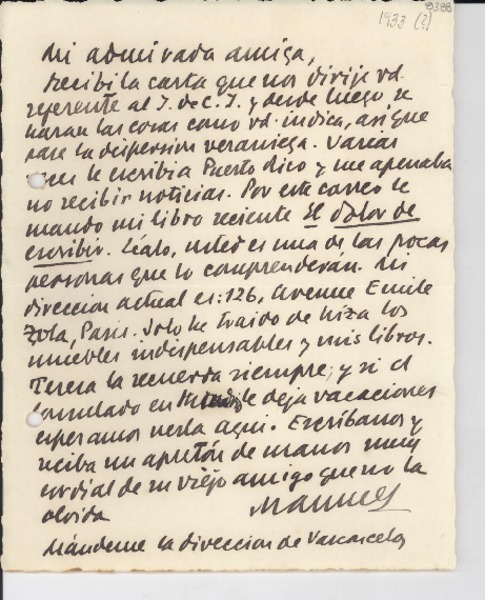 8388
1933 (?)
Mi admirada amiga,
Recibí la carta que nos dirije vd.
referente al I. de C. I. y desde luego se
harán las cosas como vd. indica, así que
pase la dispersión veraniega. Varias
veces le escribía Puerto Rico y me apenaba
no recibir noticias. Por este correo le
mando mi libro reciente El dolor de
escribir. Léalo, usted es una de las pocas
personas que lo comprenderán. Mi
dirección actual es: 126, Avenue Emile
Zola, Paris. Solo he traido de Niza los
muebles indispensables y mis libros.
Teresa la recuerda siempre; y si el
Consulado en Madrid le deja vacaciones
esperamos verla aquí. Escríbanos y
reciba un apretón de manos muy
cordial de su viejo amigo que no la
olvida
Manuel
Mándeme la dirección de Vasconcelos